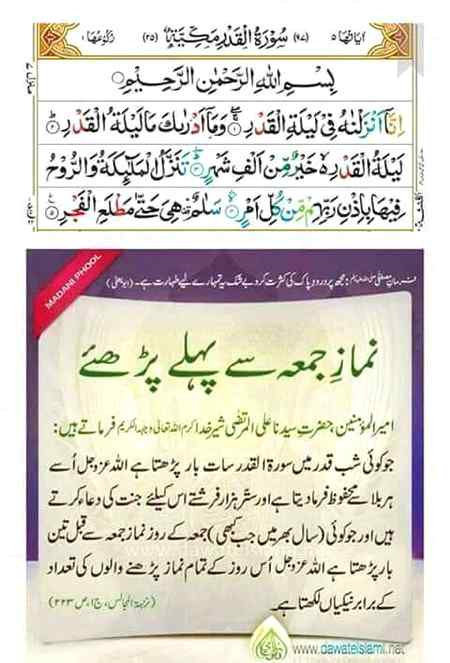 اٰیَاتُهَا ٥ (٩٧) سُوْرَةُ الْقَدْرِ مَكِّيَّةٌ (٢٥) رُكُوْعُهَا ١
بِسْمِ اللهِ الرَّحْمٰنِ الرَّحِيْمِ
اِنَّاۤ اَنْزَلْنٰهُ فِیْ لَیْلَةِ الْقَدْرِ ۚۖ۱ وَمَاۤ اَدْرٰىكَ مَا لَیْلَةُ الْقَدْرِ ؕ۲
لَیْلَةُ الْقَدْرِ ۙ۬ خَیْرٌ مِّنْ اَلْفِ شَهْرٍ ؕ۳ تَنَزَّلُ الْمَلٰٓىِٕكَةُ وَالرُّوْحُ
فِیْهَا بِاِذْنِ رَبِّهِمْ ۚ مِنْ كُلِّ اَمْرٍ ۙ۴ سَلٰمٌ ۛ۫ هِیَ حَتّٰی مَطْلَعِ الْفَجْرِ ۠۵
MADANI PHOOL
فرمانِ مصطفٰی صلی اللہ علیہ وسلم: مجھ پر درودِ پاک کی کثرت کرو بے شک یہ تمہارے لیے طہارت ہے۔ (ابویعلیٰ)
نمازِ جمعہ سے پہلے پڑھئے
امیرالمؤمنین حضرتِ سیدنا علی المرتضیٰ شیرِ خدا کرم اللہ تعالیٰ وجہہ الکریم فرماتے ہیں:
جو کوئی شبِ قدر میں سورۃ القدر سات بار پڑھتا ہے اللہ عزوجل اُسے
ہر بلا سے محفوظ فرما دیتا ہے اور ستّر ہزار فرشتے اس کیلئے جنت کی دعاء کرتے
ہیں اور جو کوئی (سال بھر میں جب کبھی) جمعہ کے روز نمازِ جمعہ سے قبل تین
بار پڑھتا ہے اللہ عزوجل اُس روز کے تمام نماز پڑھنے والوں کی تعداد
کے برابر نیکیاں لکھتا ہے۔ (نزہۃ المجالس، ج۱، ص ۲۲۳)
www.dawateislami.net